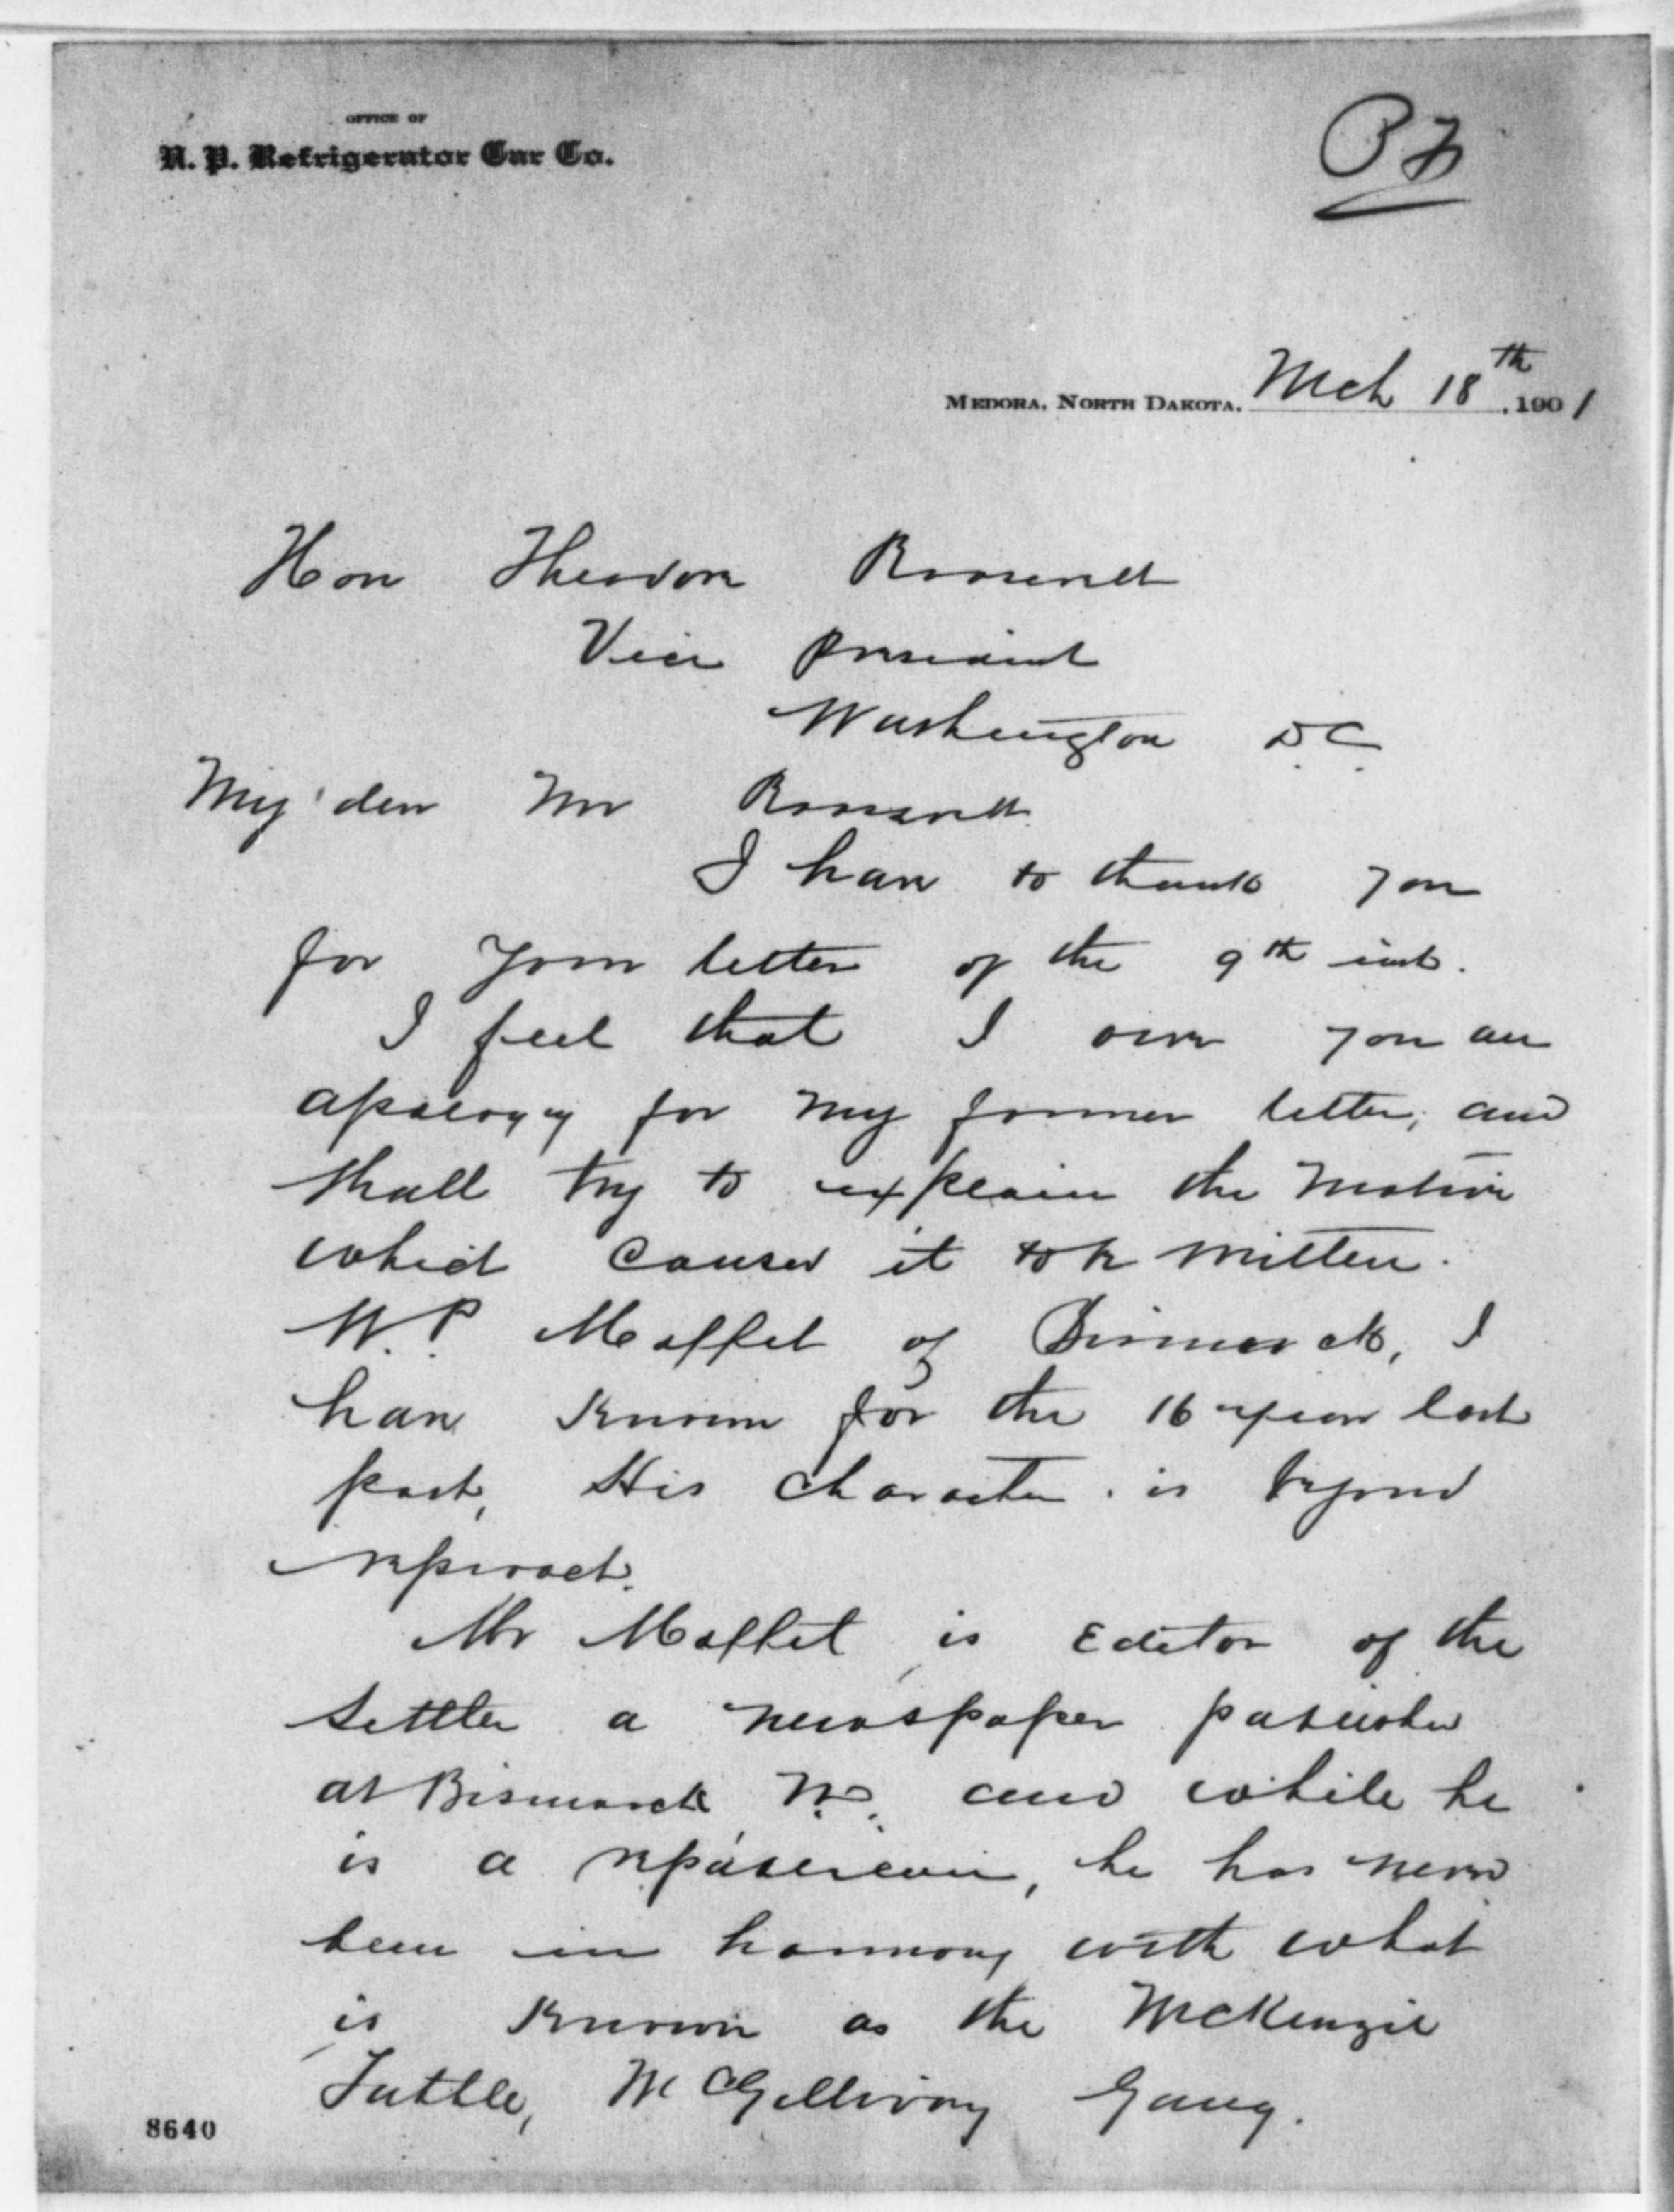 OFFICE OF
N. P. Refrigerator Car Co.
MEDORA, NORTH DAKOTA, Mch 18th, 1901
Hon Theodore Roosevelt
Vice President
Washington D.C.
My dear Mr Roosevelt
I have to thank you
for your letter of the 9th inst.
I feel that I owe you an
apology for my former letter, and
shall try to explain the motive
which caused it to be written.
W. P. Moffet of Bismarck, I
have known for the 16 years last
past, His character is beyond
reproach.
Mr Moffet is Editor of the
Settler a newspaper published
at Bismarck N.D. and while he
is a republican, he has never
been in harmony with what
is known as the McKenzie
Tuttle, McGillivray Gang.
8640